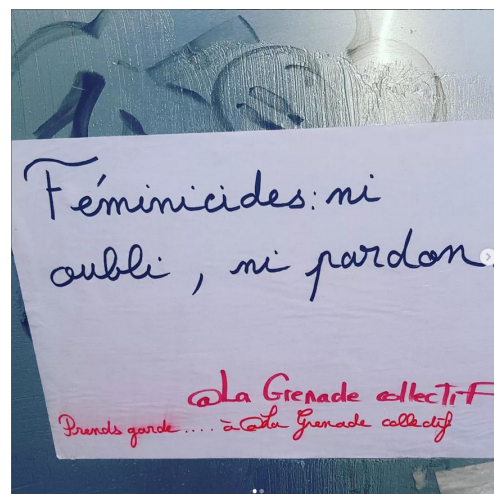 Féminicides: ni
oubli, ni pardon.
@La Grenade ollectif
Prends garde .... à @La Grenade collectif